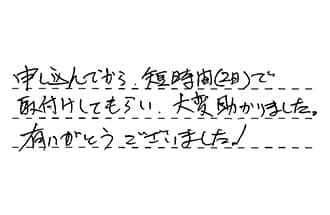 申し込んでから、短時間(2日)で
取付けしてもらい、大変助かりました。
有りがとうございました!